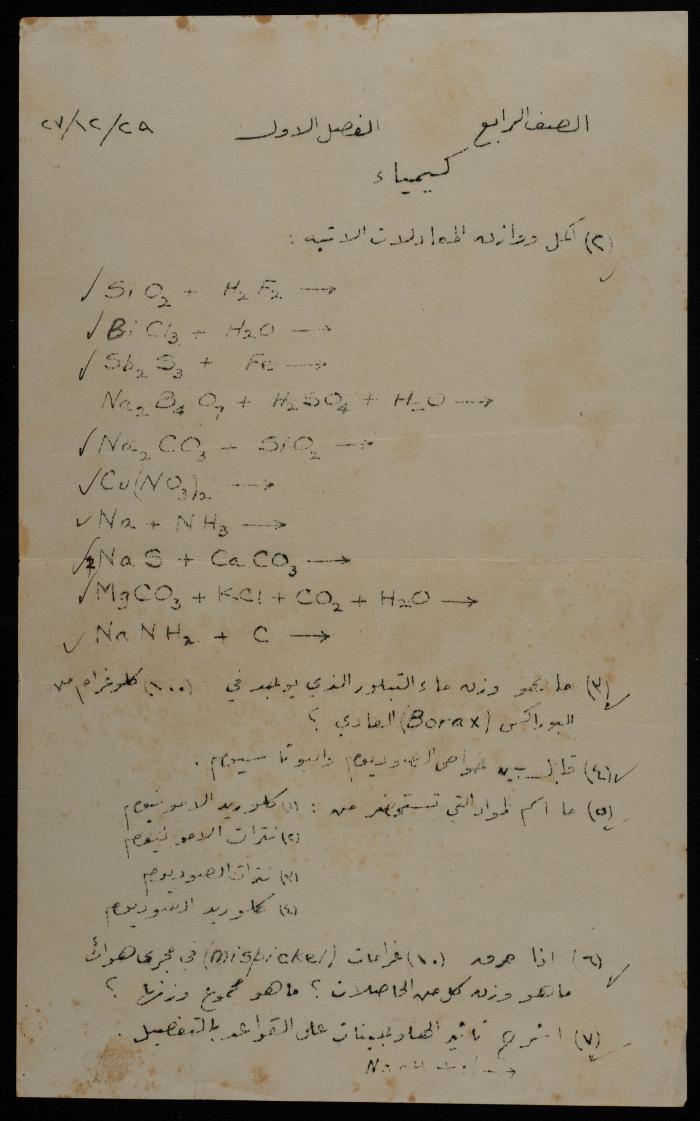 الصف الرابع الفصل الاول ٢٧/١٢/٢٩
كيمياء
(٢) أكمل ووازن المعادلات الاتيه :
✓ SiO₂ + H₂F₂ →
✓ BiCl₃ + H₂O →
✓ Sb₂S₃ + Fe →
Na₂B₄O₇ + H₂SO₄ + H₂O →
✓ Na₂CO₃ + SiO₂ →
✓ Cu(NO₃)₂ →
✓ Na + NH₃ →
✓ 2NaS + CaCO₃ →
✓ MgCO₃ + KCl + CO₂ + H₂O →
✓ NaNH₂ + C →
(٣) ما هو وزن ماء التبلور الذي يوجد في (١٠٠) كلوغرام من
البوراكس (Borax) العادي ؟
(٤) قابل بين خواص الصوديوم والبوتاسيوم .
(٥) ما اسم المواد التي تستحضر من : (١) كلوريد الامونيوم
(٢) نترات الامونيوم
(٣) نترات الصوديوم
(٤) كلوريد الصوديوم
(٦) اذا حرق (١٠) غرامات (mispickel) في مجرى هوائي
ما هو وزن كل من الحاصلات ؟ ما هو مجموع وزنها ؟
(٧) اشرح تأثير الهالوجينات على القواعد بالتفصيل .